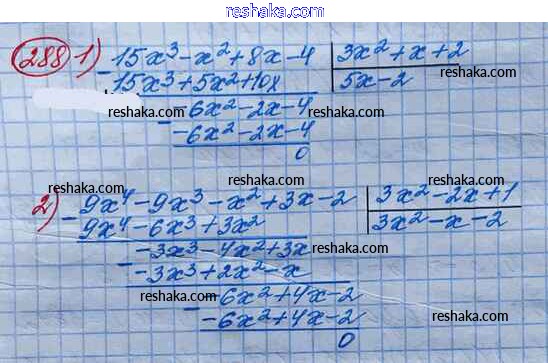 reshaka.com
reshaka.com
288 1) 15x³-x²+8x-4 | 3x²+x+2
15x³+5x²+10x | 5x-2
reshaka.com
-6x²-2x-4 reshaka.com
-6x²-2x-4
reshaka.com 0 reshaka.com
reshaka.com
2) 9x⁴-9x³-x²+3x-2 | 3x²-2x+1
9x⁴-6x³+3x² | 3x²-x-2
reshaka.com
-3x³-4x²+3x reshaka.com
-3x³+2x²-x
reshaka.com -6x²+4x-2 reshaka.com
-6x²+4x-2
0
reshaka.com